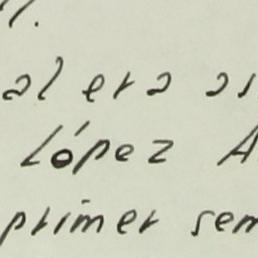 al era
López A
primer sem